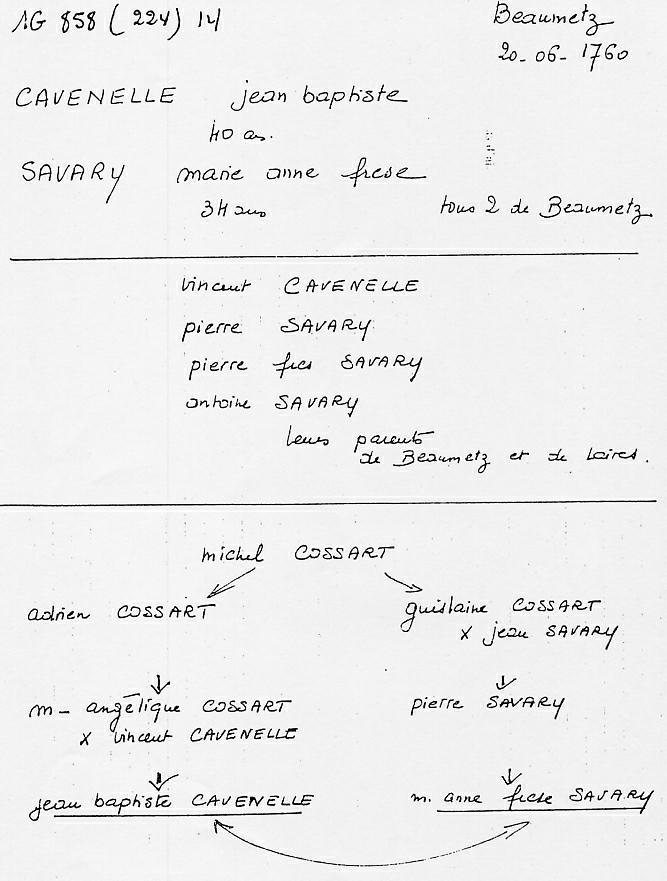 AG 858 (224) 14
Beaumetz
20-06-1760
CAVENELLE jean baptiste
40 ans.
SAVARY marie anne frcse
34 ans
tous 2 de Beaumetz.
vincent CAVENELLE
pierre SAVARY
pierre frcs SAVARY
antoine SAVARY
leurs parents
de Beaumetz et de Laires.
michel COSSART
adrien COSSART
guislaine COSSART
x jean SAVARY
m - angélique COSSART
x vincent CAVENELLE
pierre SAVARY
jean baptiste CAVENELLE
m. anne frcse SAVARY